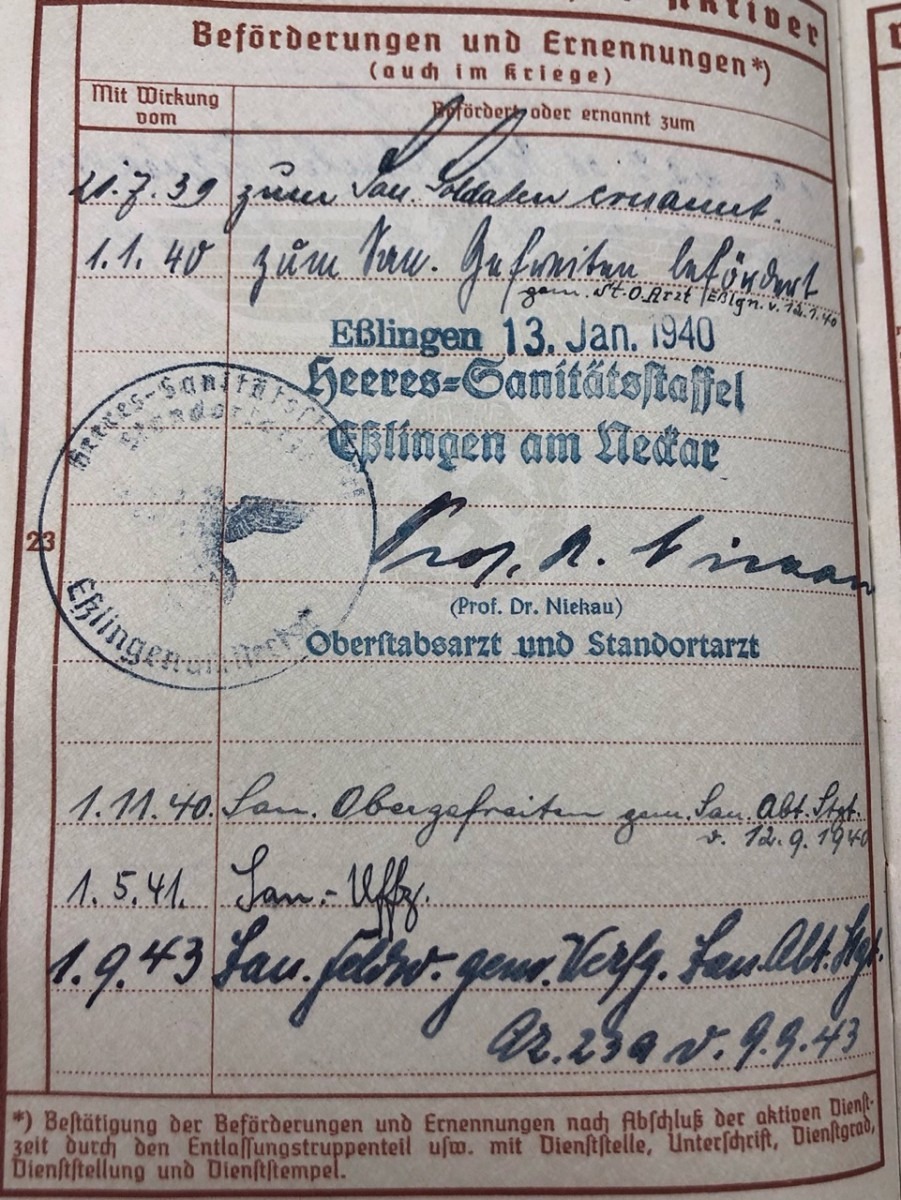 Aktiver
Beförderungen und Ernennungen*)
(auch im Kriege)
Mit Wirkung vom
Befördert oder ernannt zum
21.7.39 zum San. Soldaten ernannt.
1.1.40 zum San. Gefreiten befördert
gem. St.O.Arzt Eßlgn. v. 12.1.40
Eßlingen 13. Jan. 1940
Heeres-Sanitätsstaffel
Eßlingen am Neckar
Heeres-Sanitätsstaffel
Eßlingen am Neckar
23
Prof. Dr. Niekau
(Prof. Dr. Niekau)
Oberstabsarzt und Standortarzt
1.11.40. San. Obergefreiten gem. San. Abt. Stgt.
v. 12.9.1940
1.5.41. San.-Uffz.
1.9.43 San. Feldw. gem. Verfg. San. Abt. Stgt.
Az. 23a v. 9.9.43
*) Bestätigung der Beförderungen und Ernennungen nach Abschluß der aktiven Dienst-
zeit durch den Entlassungstruppenteil usw. mit Dienststelle, Unterschrift, Dienstgrad,
Dienststellung und Dienststempel.